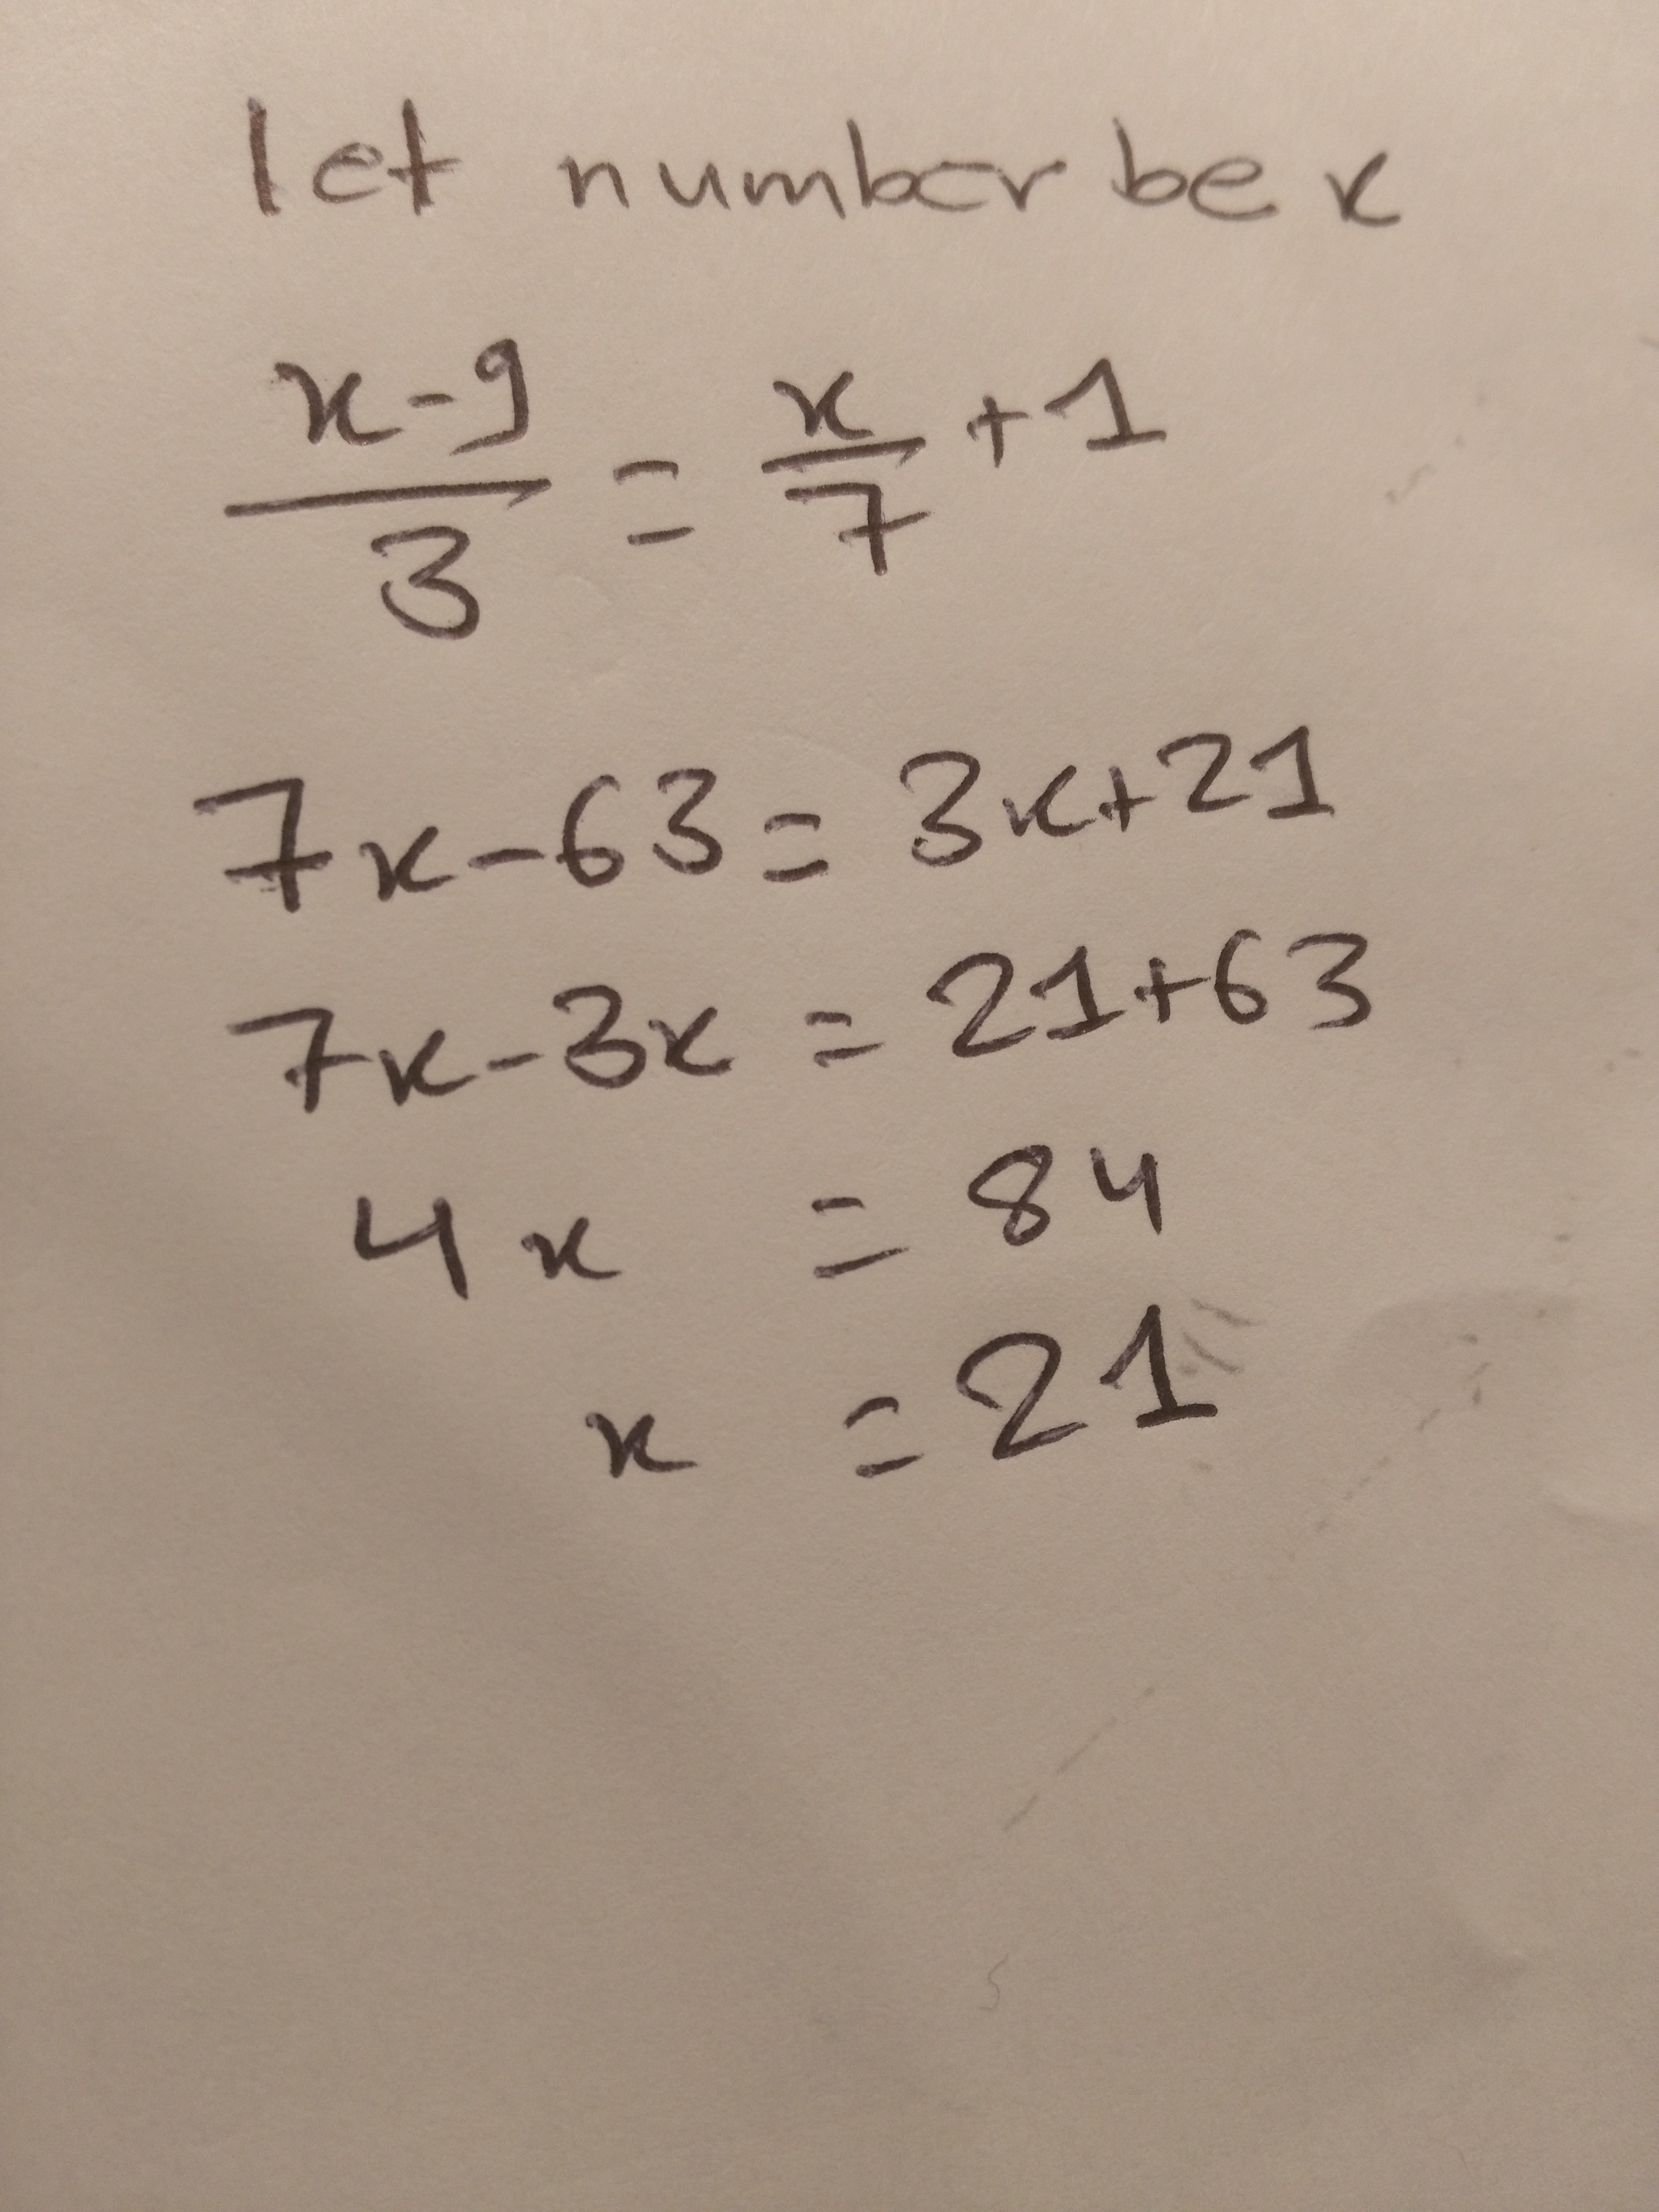 let number be x
x-9/3 = x/7 +1
7x-63 = 3x+21
7x-3x = 21+63
4x = 84
x = 21